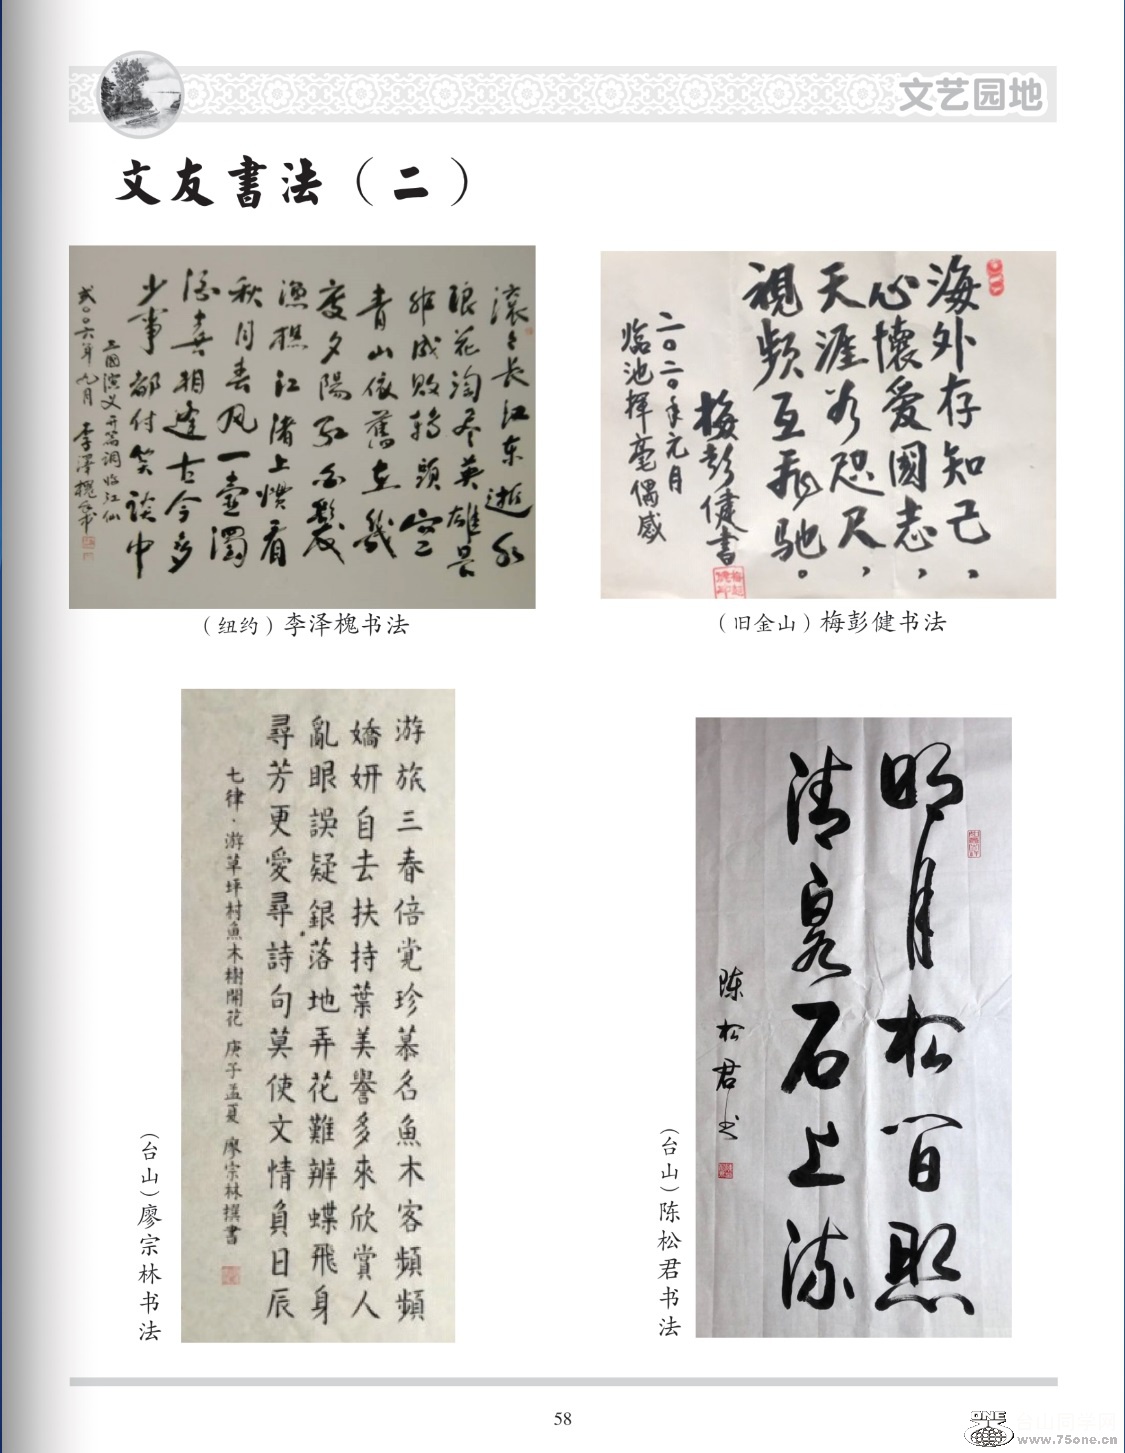 文艺园地
文友書法（二）
滚々长江东逝水
浪花淘尽英雄是
非成败转头空
青山依舊在幾
度夕陽红白髮
渔樵江渚上惯看
秋月春风一壶濁
酒喜相逢古今多
少事都付笑谈中
三國演义开篇词临江仙
弍〇〇六年九月 李澤槐书
（纽约）李泽槐书法
海外存知己，
心懷爱國志，
天涯若咫尺，
視频互飛驰。
梅彭健書
二〇二〇年元月
临池揮毫偶感
（旧金山）梅彭健书法
游旅三春倍觉珍慕名魚木客頻頻
嬌妍自去扶持葉美譽多來欣賞人
亂眼誤疑銀落地弄花難辨蝶飛身
尋芳更愛尋詩句莫使文情負日辰
七律·游草坪村魚木樹開花 庚子孟夏 廖宗林撰書
（台山）廖宗林书法
明月松间照
清泉石上流
陈松君书
（台山）陈松君书法
58
ONE
www.75one.cn